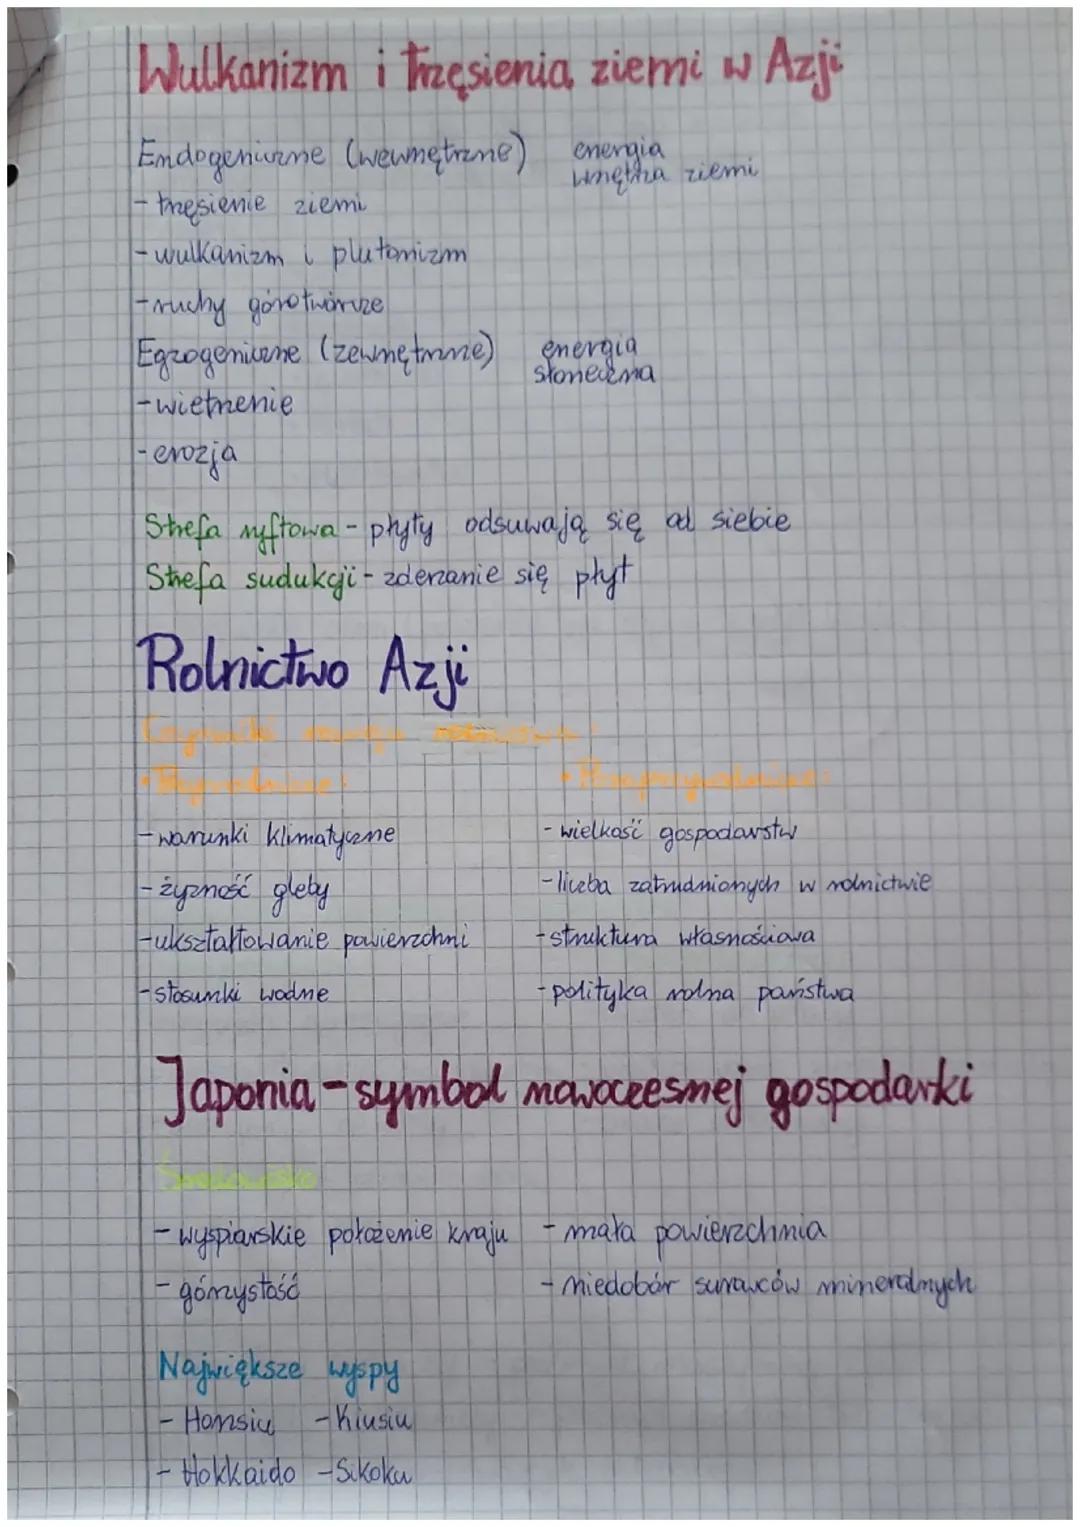 Wulkanizm i trzęsienia ziemi w Azji
Endogeniczne (wewnętrzne) energia
wnętrza ziemi
- trzęsienie ziemi
- wulkanizm i plutonizm
- ruchy górotwórcze
Egzogeniczne (zewnętrzne) energia
słoneczna
- wietrzenie
- erozja
Strefa ryftowa - płyty odsuwają się od siebie
Strefa sudukcji - zderzanie się płyt
Rolnictwo Azji
Czynniki rozwoju rolnictwa:
• Przyrodnicze: • Pozaprzyrodnicze:
- warunki klimatyczne - wielkość gospodarstw
- żyzność gleby - liczba zatrudnionych w rolnictwie
- ukształtowanie powierzchni - struktura własnościowa
- stosunki wodne - polityka rolna państwa
Japonia - symbol nowoczesnej gospodarki
Środowisko
- wyspiarskie położenie kraju - mała powierzchnia
- górzystość - niedobór surowców mineralnych
Największe wyspy
- Honsiu - Kiusiu
- Hokkaido - Sikoku